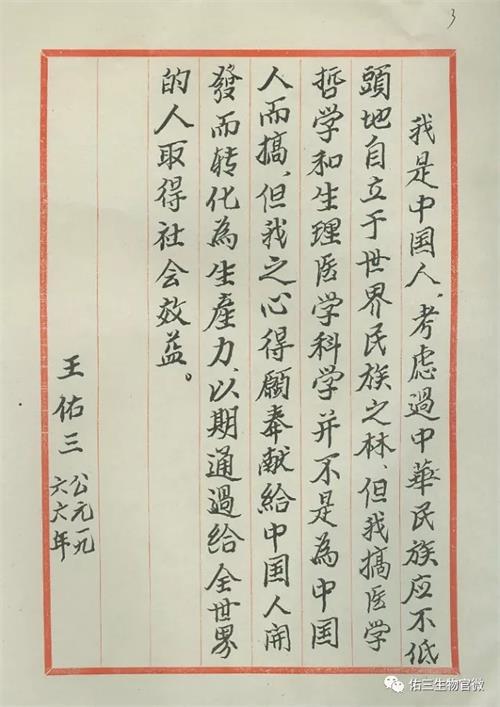 3
我是中国人、考虑過中華民族应不低
頭地自立于世界民族之林、但我搞医学
哲学和生理医学科学并不是為中国
人而搞、但我之心得願奉献給中国人開
發而转化為生產力、以期通過给全世界
的人取得社会效益。
王佑三
公元一九
六六年
佑三生物官微